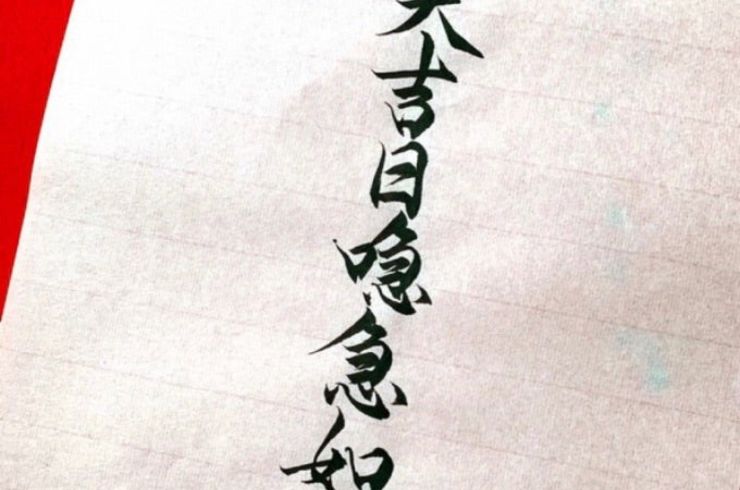 吉日喼急如